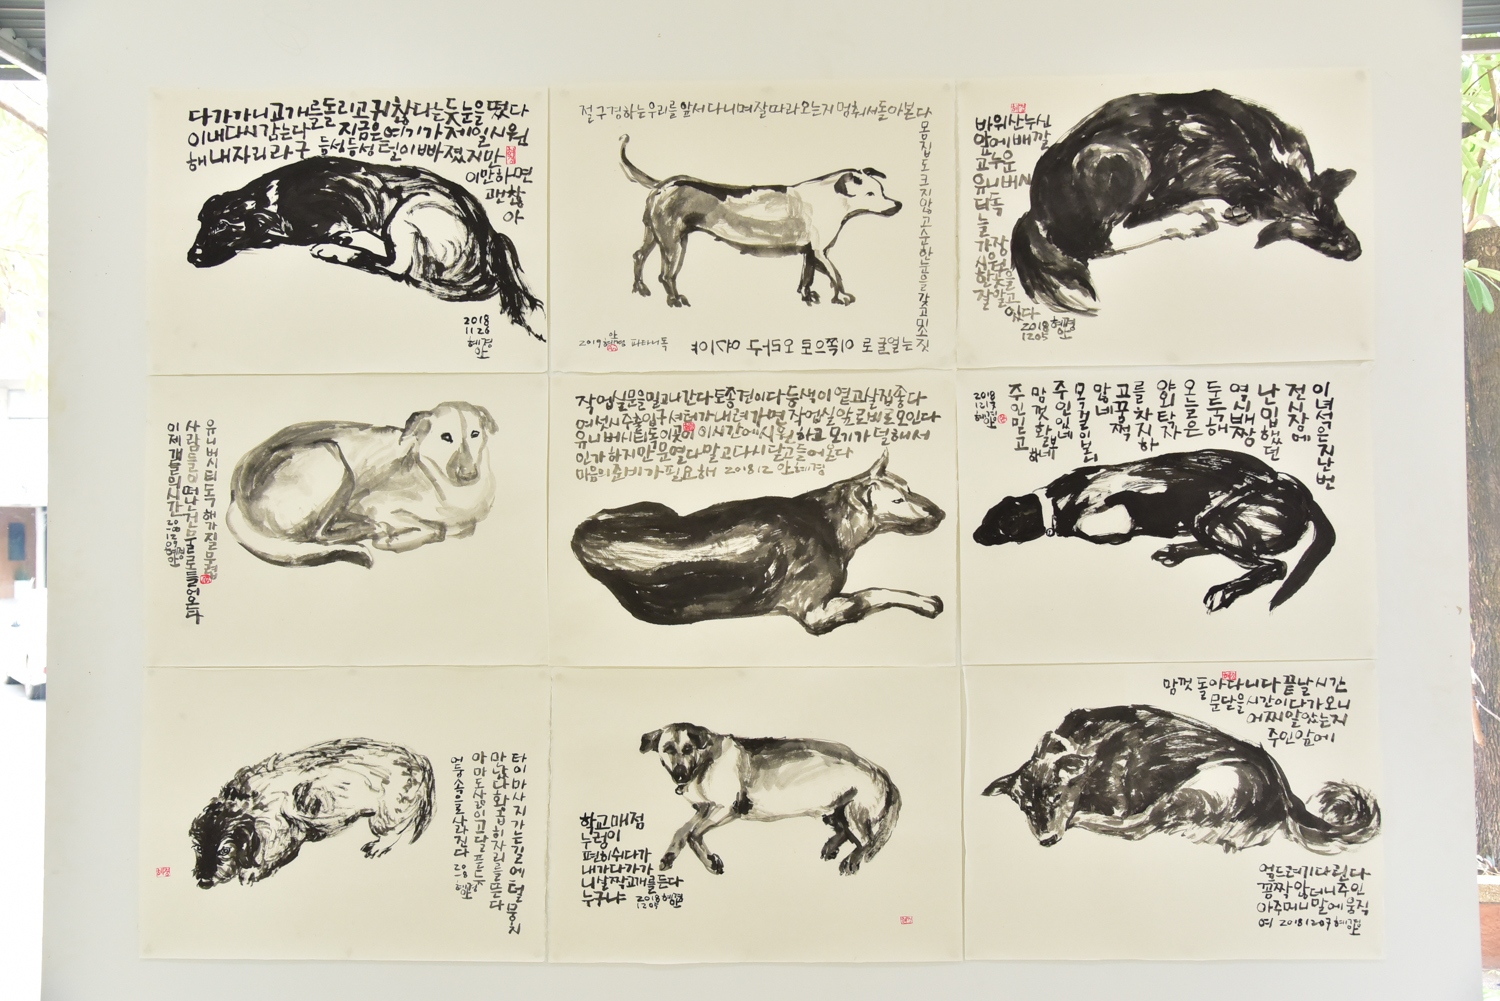 다가가니 고개를 돌리고 귀찮다는 듯 눈을 떴다
이내 다시 감는다 지금은 여기가 제일 시원
해 내 자리라구 듬성듬성 털이 빠졌지만
이만하면
괜찮
아
2018
11 26
혜경
안
절 구경하는 우리를 앞서 다니며 잘 따라오는지 멈춰서 돌아본다
몸집도 크지 않고 순한 눈을 갖고 미소
짓는 얼굴로 이쪽으로 오라구 아시야
2019 안혜경 파타니독
바위산 누신
앞에 배깔
고 누운
유니버시
티독
늘
가장
시원한 곳을
잘 알고
있다
2018 혜경
1205 안
유니버시티독 해가 질 무렵
사람들이 떠난 건물로 들어온다
이제 개들의 시간
작업실 문을 밀고 나간다 토종견이다 동생이 열고 살집 좋다
여섯시 수출입구 셔터가 내려가면 작업실 앞 로비로 모인다
유니버시티독 이곳이 이시간에 시원하고 모기가 덜해서
인가 하지만 문 열다 말고 다시 닫고 들어온다
마음의 준비가 필요해 2018 12 안혜경
이녁은 지난번
전시장에
난입했던
역시 쌩짱
두둑해
오늘은
왔와 탁자
를 차지하
고 꿈쩍
않네
목걸이 보니
주인 있네
맘껏 활보하네
주인 믿고
타이마사지 가는 길에 털뭉치
만났다 황급히 자리를 뜬다
아마도 사랑이 고달픈 듯
어둠속으로 사라진다
학교 매점
누렁이
편히 쉬다가
내가 다가가
니 살짝 고개를 든다
누구냐 2018 혜경
1209 안
맘껏 돌아다니다 끝날 시간
문닫을 시간이 다가오니
어찌 알았는지
주인 앞에
엎드려 기다린다
꿈짝 않더니 주인
아주머니 말에 움직
여 20181207 혜경
안